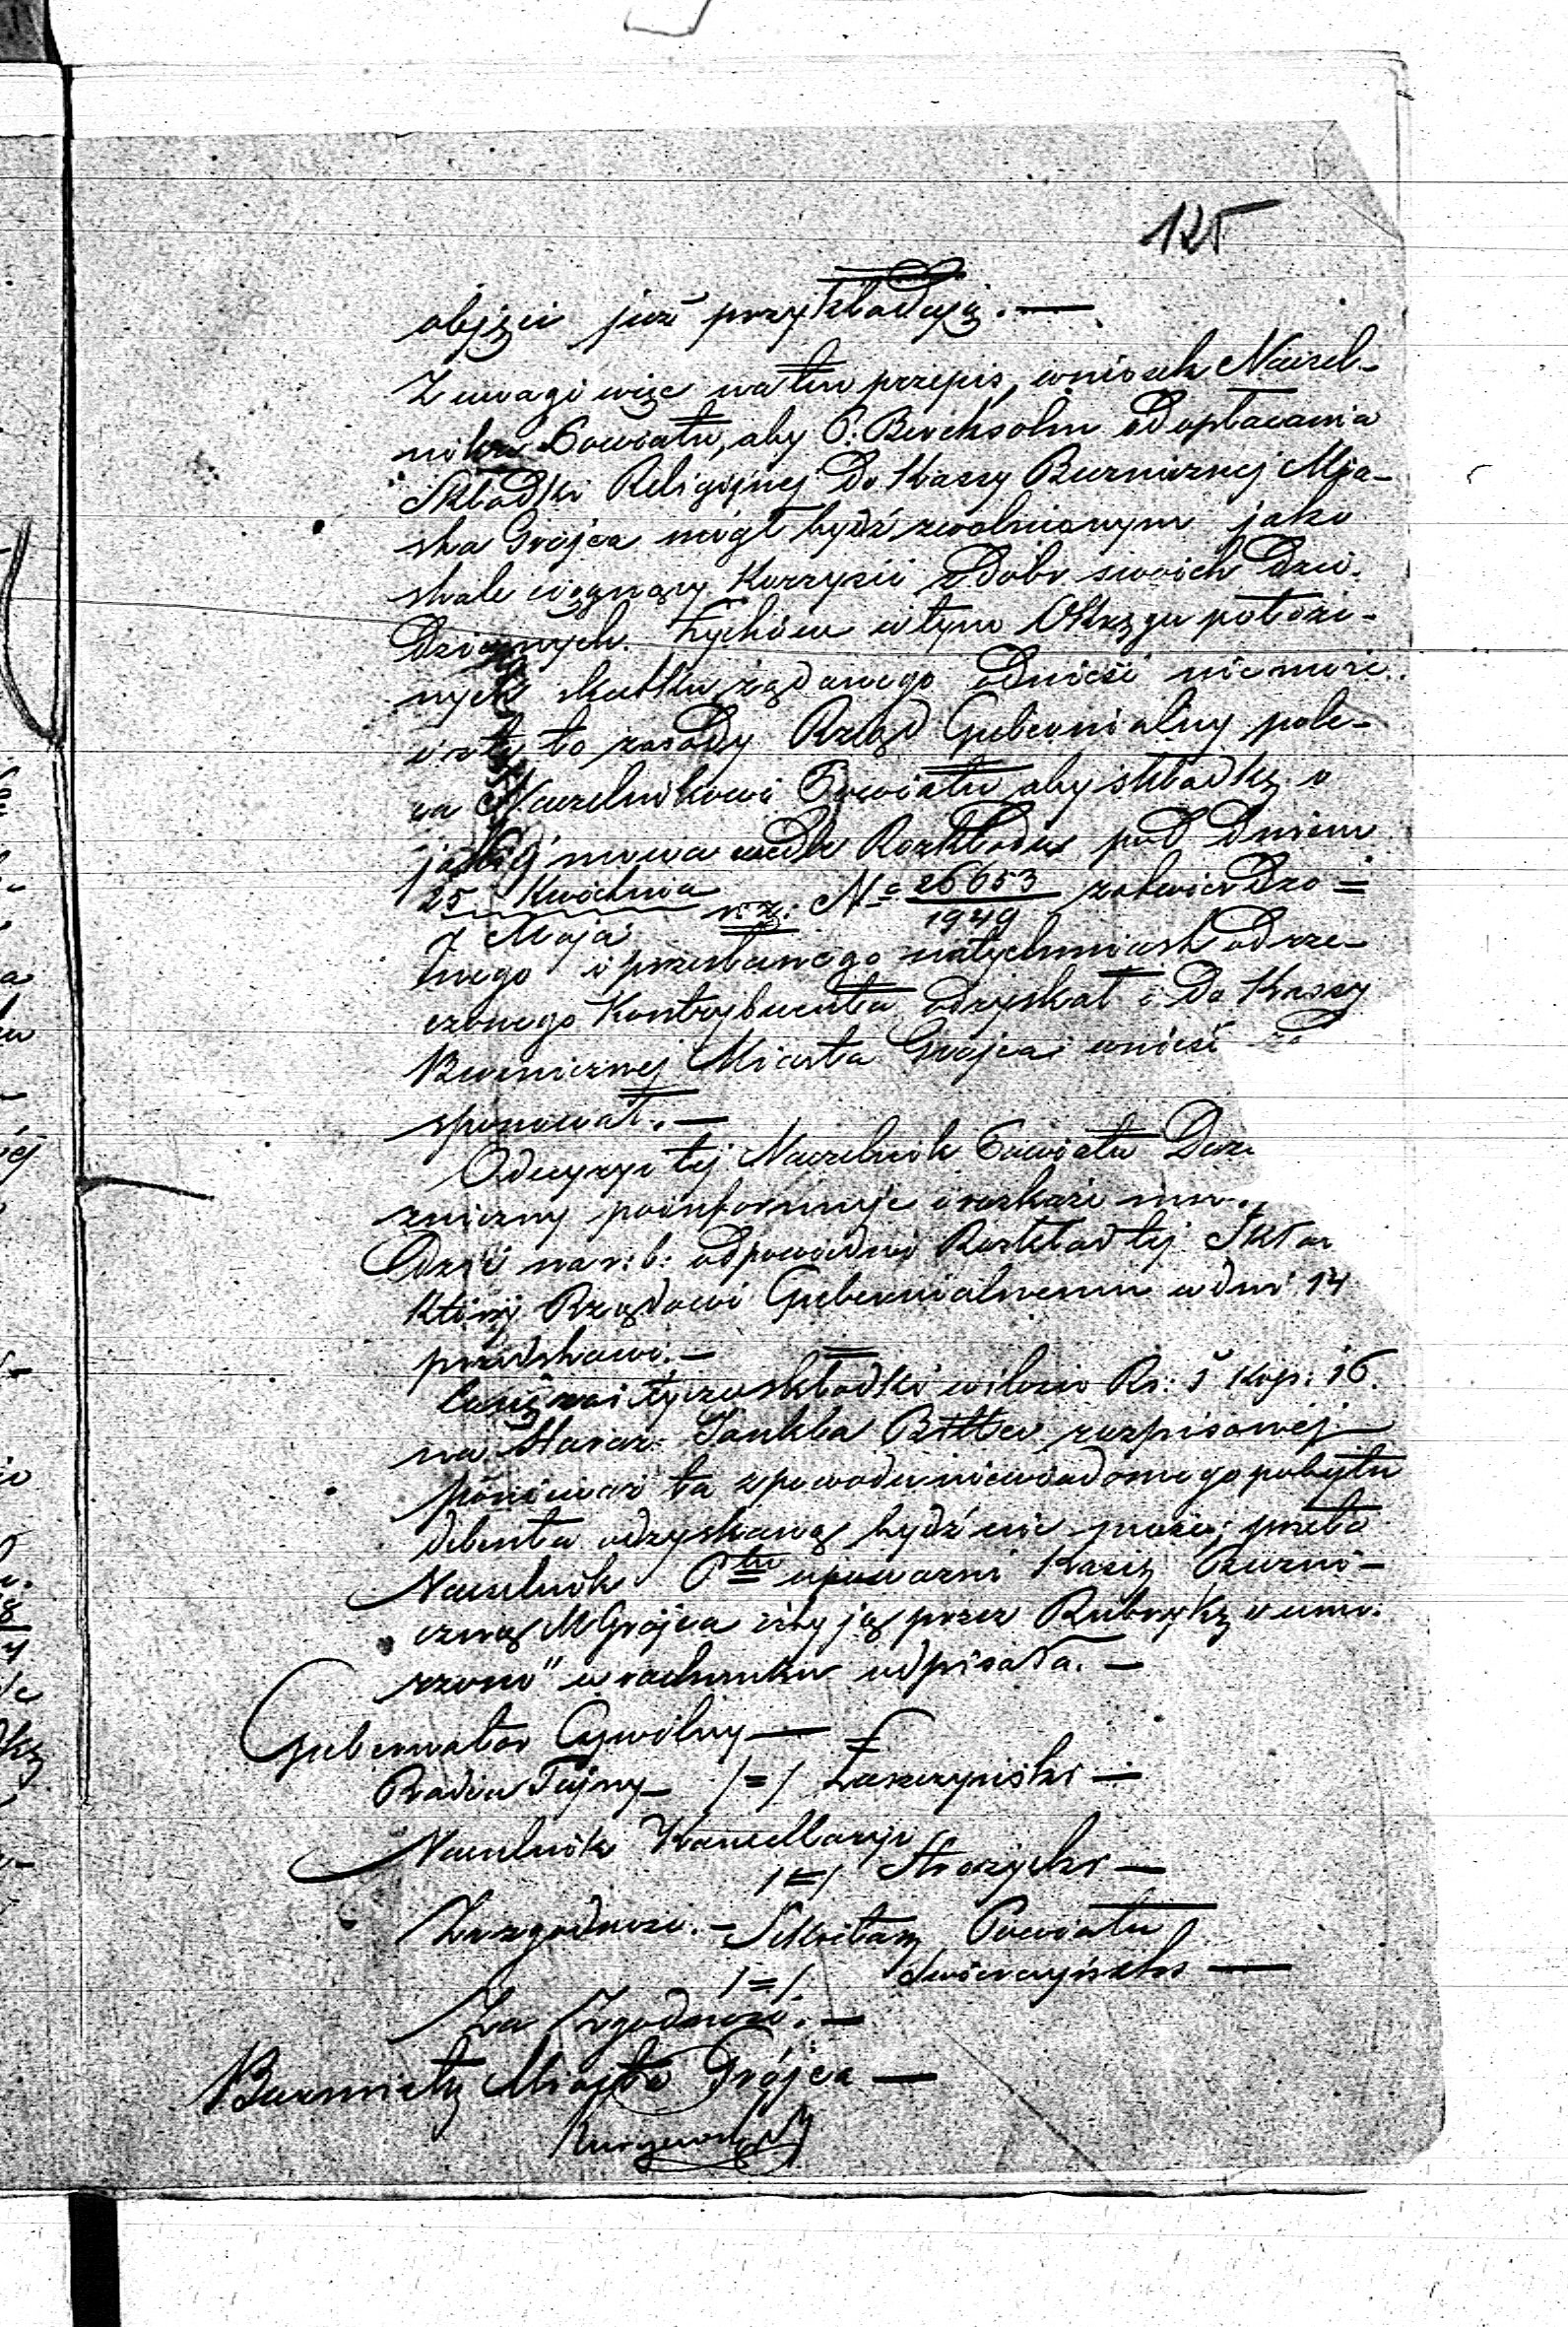 125
objęci już przykładają. —
Z uwagi więc na ten przepis, wniosek Naczel-
nika Powiatu, aby P. Bereksohn od opłacania
Składki Religijnej do Kassy Bużniczej Mia-
sta Grójca mógł bydź zwolnionym jako
stale ciągnący Korzyści z dóbr swoich Dzie-
dzicznych w tym Okręgu położo-
nych skutku żądanego odnieść nie może.
i z tej to zasady Rząd Gubernialny pole-
ca Naczelnikowi Powiatu aby składkę o
jakiej mowa wedle Rozkładu pod dniem
25 Kwietnia
7 Maja r: z: No 26653/1949 zatwierdzo=
nego i przesłanego natychmiast od rze-
czonego Kontrybuenta odzyskał i do Kassy
Bużniczej Miasta Grójca wnieść
sponował. —
O decyzyi tej Naczelnik Powiatu Dozór
poinformuje i rozkaże
na r: b: odpowiedni Rozkład tej Skła
który Rządowi Gubernialnemu w dni 14
przedstawi. —
składki w ilości Rs: 1 kop: 16.
na Staroz: Jankla rozpisanej
ponieważ ta z powodu niewiadomego pobytu
debenta odzyskaną bydź nie może; przeto
Naczelnik Ptu upoważni Kassę Bużni-
czną M Grójca żeby ją przez Rubrykę „umo-
rzono" w rachunku odpisała. —
Gubernator Cywilny —
Radca Tajny /=/ Łaszczyński —
Naczelnik Kancellaryi
/=/ Strożycki —
Za zgodność. — Sekretarz Powiatu
/=/
Za Zgodność. —
Burmistrz Miasta Grójca —